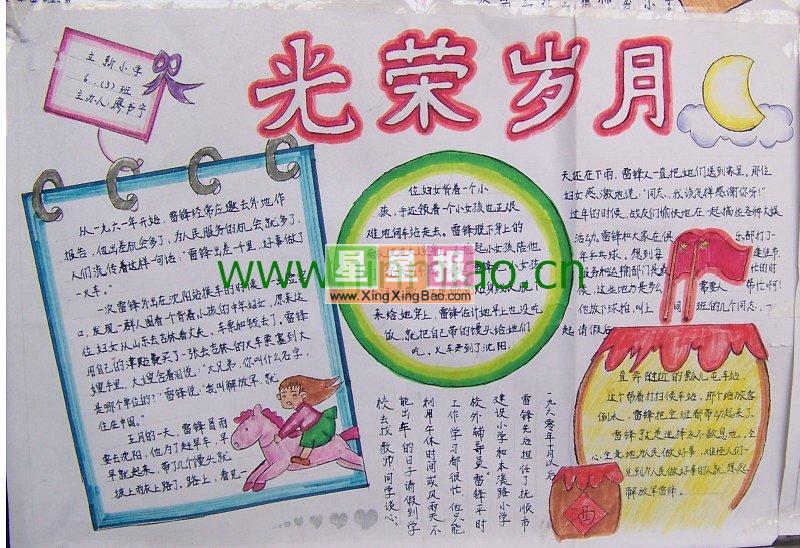 立新小学
6.(3)班
主办人:廖书宁
光荣岁月
从一九六一年开始,雷锋经常应邀去外地作
报告,他出差机会多了,为人民服务的机会就多了,
人们流传着这样一句话:“雷锋出差一千里,好事做了
一火车。”
一次雷锋外出在沈阳站换车的时候,一出
口,发现一群人围看一个背着小孩的中年妇女,原来这
位妇女从山东去吉林看丈夫,车票和钱丢了。雷锋
用自己的津贴费买了一张去吉林的火车票塞到大
嫂手里,大嫂含着泪说:“大兄弟,你叫什么名字,
是哪个单位的?”雷锋说:“我叫解放军,就
住在中国。”
五月的一天,雷锋冒雨
要去沈阳,他为了赶早车,早
早就起来,带了几个馒头就
披上雨衣上路了。路上,看见一
位妇女背着一个小
孩,手还领着一个小女孩也正艰
难地向车站走去。雷锋脱下身上的
来给她穿上,雷锋估计她早上也没吃
饭,就把自己带的馒头给她们
吃。火车到了沈阳,
天还在下雨,雷锋又一直把她们送到家里。那位
妇女感激地说:“同志,我该怎样感谢你呀!”
过年的时候,战友们愉快地在一起搞些各种文娱
活动。雷锋和大家在俱
乐部打了一
年乒乓球。想到每
服务和运输部门是最
忙的时
候,这些地方是多么
需要人
帮忙啊!
他放下球拍,叫上
同班的几个同志,一
起请假后
直奔附近的瓢儿屯车站,
这个帮着打扫候车站,那个给旅客
倒水,雷锋把全班都带动起来了。
雷锋就是选择永不歇息地,全
心全意地为人民做好事,难怪人们一
见到为人民做好事的人就想起
解放军雷锋。
一九六〇年十月以后,
雷锋先后担任了抚顺市
建设小学和本溪路小学
校外辅导员,雷锋平时
工作学习都很忙,他只能
利用午休时间或风雨天不
能出车的日子请假到学
校去找教师、同学谈心。
酒
星星报
www.XingXingBao.com